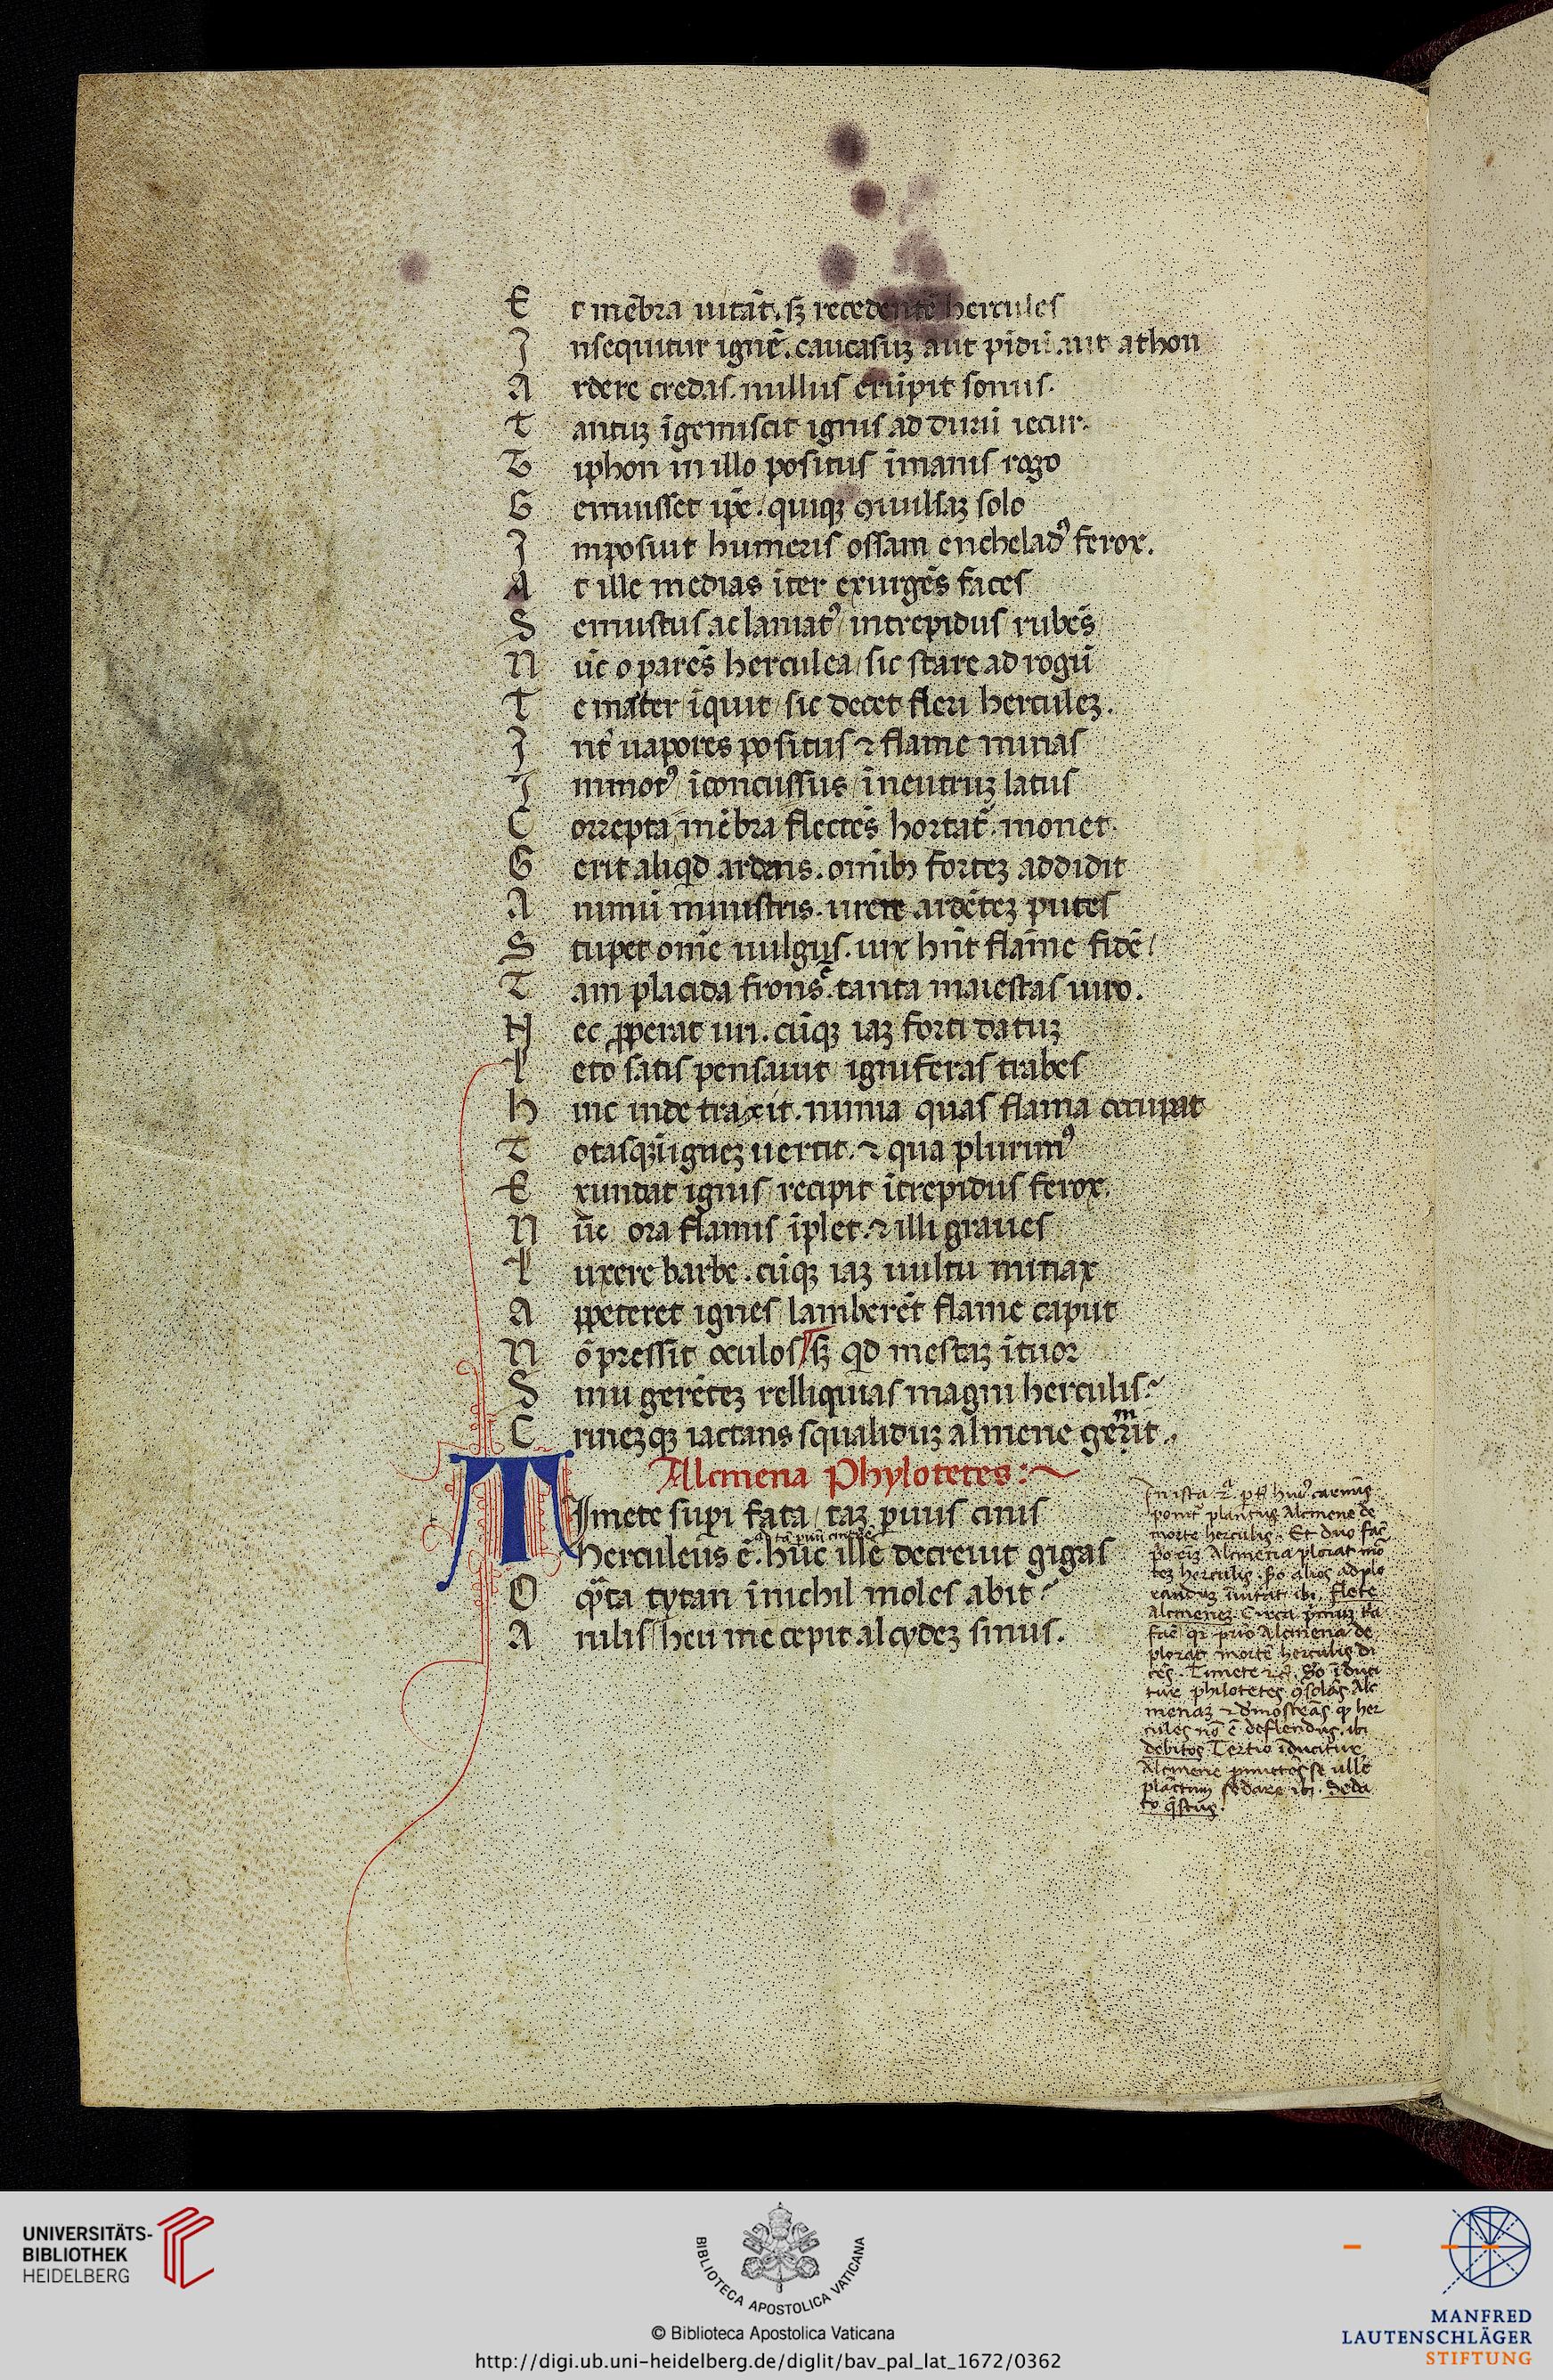 Et mēbra uitāt. sꝫ recedentē hercules
Insequitur ignē. caucasuꝫ aut pīdū aut athon
Ardere credas. nullus erūpit sonus.
Tantuꝫ īgemiscit ignis ad durū iecur.
Tiphon in illo positus īmanis rogo
Gemuisset ip̄e. quiqꝫ ꝯuulsaꝫ solo
Imposuit humeris ossam enchelad᾽ ferox.
At ille medias īter exurgēs faces
Semustus ac laniat᾽ intrepidus rubēs
Nūc o parēs herculea / sic stare ad rogū
Te mater īquit / sic decet fleri herculeꝫ.
Int᾽ uapores positus ⁊ flame minas
Inmot᾽ īconcussus / in eutruꝫ latus
Correpta mēbra flectēs hortat᾽. monet.
Gerit aliqd ardens. omībꝫ forteꝫ addidit
Animū ministris. urere ardēteꝫ putes
Stupet ōne uulgus. uix hn̄t flāme fidē /
Tam placida frons ē. tanta maiestas uiro.
Nec ꝓperat uri. cūqꝫ iaꝫ forti datuꝫ
Leto satis pensauit igniferas trabes
Hinc inde traxit. nimia quas flama occupat
Totasqꝫ ī igneꝫ uertit. ⁊ qua plurim᾽
Exundat ignis / recipit ītrepidus ferox.
Nūc ora flamis īplet. ⁊ illi graues
Luxere barbe. cūqꝫ iaꝫ uultu minax
Appeteret ignes lamberēt flame caput
Nō pressit oculos / sꝫ qd mestaꝫ ītuor
Sinu gerēteꝫ relliquias magni herculis.
Crineꝫqꝫ iactans squaliduꝫ almene gemit.
Alcmena Phylotetes:~
TImete suꝑi fata / taꝫ puus cinis
ad tā puū cinerē
Herculeus ē. huc ille decreuit gigas
O qᷓta tytan īnichil moles abit
Anilis / heu me cepit alcydeꝫ sinus.
ponit᾽ planctus Alcmene de
morte herculis. Et duo fac̄
p̄o eīꝫ Alcmena plorat mō
teꝫ herculis. So alios ad plo
randuꝫ īuitat ibi. flete
Alcmeneꝫ. Circa p̄muꝫ
plorat mortē herculis di
cēs. Timete ⁊c̄. So īduci
tur philotetes ꝯsolās Alc
menaꝫ ⁊ dmōstrās ꝙ her
cules nō ē deflendus. ibi
debitos. Tertio īducitur
plāctum sedare ibi. Seda
to q̄stus.
UNIVERSITÄTS-
BIBLIOTHEK
HEIDELBERG
BIBLIOTECA APOSTOLICA VATICANA
© Biblioteca Apostolica Vaticana
http://digi.ub.uni-heidelberg.de/diglit/bav_pal_lat_1672/0362
MANFRED
LAUTENSCHLÄGER
STIFTUNG